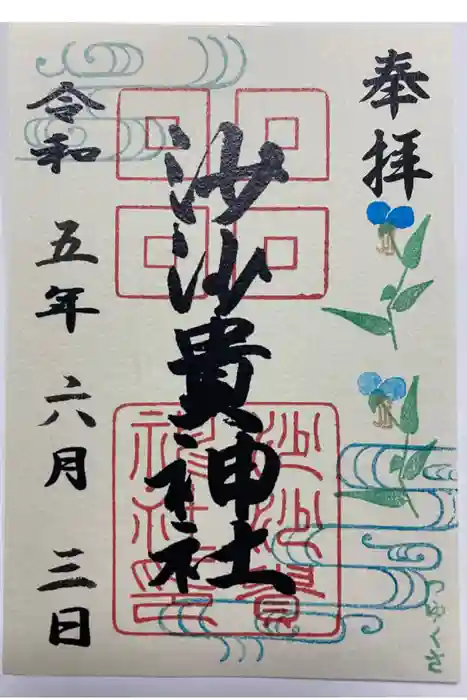 奉拝
沙沙貴神社
令和五年六月三日
つゆくさ